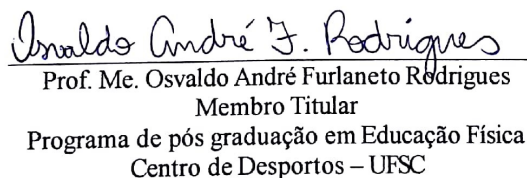 Osvaldo André F. Rodrigues
Prof. Me. Osvaldo André Furlaneto Rodrigues
Membro Titular
Programa de pós graduação em Educação Física
Centro de Desportos – UFSC